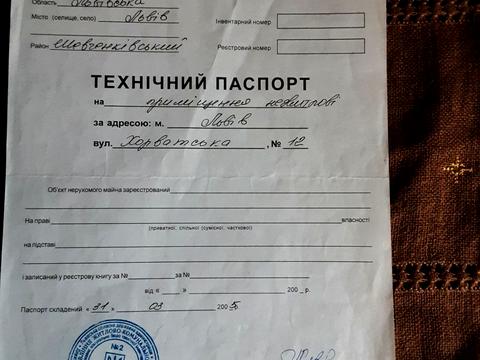 Область Львівська
Місто (селище, село) Львів Інвентарний номер
Район Шевченківський Реєстровий номер
ТЕХНІЧНИЙ ПАСПОРТ
на приміщення нежитлові
за адресою: м. Львів
вул. Хорватська, № 12
Об'єкт нерухомого майна зареєстрований
На праві власності
(приватної, спільної (сумісної, часткової)
на підставі
і записаний у реєстрову книгу за № за №
від « » 200 р.
Паспорт складений « 31 » 03 2005р.
№2